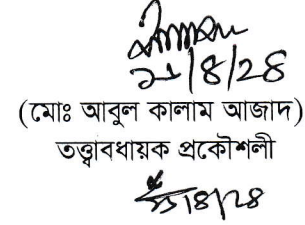 ২১/৪/২৪
(মোঃ আবুল কালাম আজাদ)
তত্ত্বাবধায়ক প্রকৌশলী
/৪/২৪